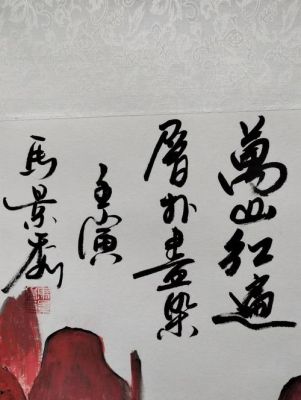 萬山紅遍
層林盡染
主演
馬景